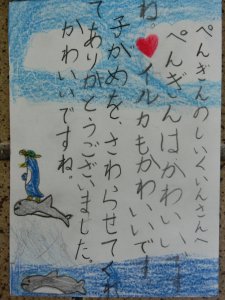 ぺんぎんのしいくいんさんへ
ぺんぎんはかわいいです
ね。♥イルカもかわいいです
子かめを、さわらせてくれ
てありがとうございました。
かわいいですね。